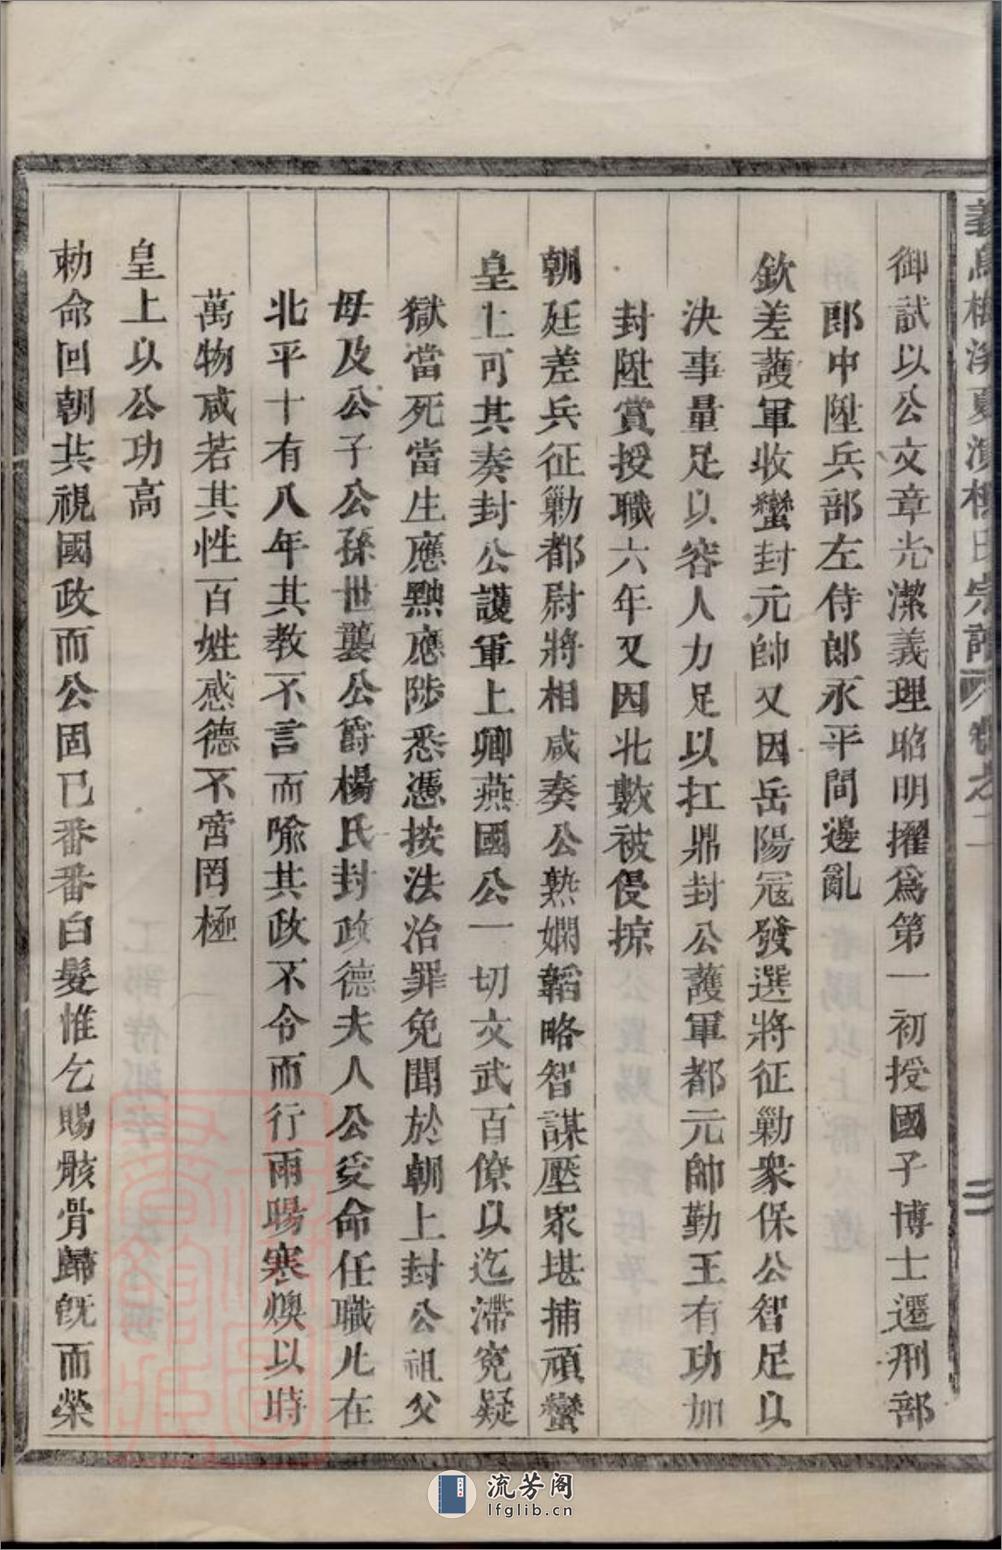 御試以公文章光潔義理昭明擢爲第一初授國子博士遷刑部
郎中陞兵部左侍郎永平間邊亂
欽差護軍收蠻封元帥又因岳陽冦發選將征勦衆保公智足以
決事量足以容人力足以扛鼎封公護軍都元帥勤王有功加
封陞賞授職六年又因北數被侵掠
朝廷差兵征勦都尉將相咸奏公熟嫻韜略智謀壓衆堪捕頑蠻
皇上可其奏封公護軍上卿燕國公一切文武百僚以迄滯寃疑
獄當死當生應黜應陟悉憑按法治罪免聞於朝上封公祖父
母及公子公孫世襲公爵楊氏封政德夫人公受命任職凢在
北平十有八年其教不言而喩其政不令而行雨暘寒燠以時
萬物咸若其性百姓感德不啻罔極
皇上以公功高
勅命回朝共視國政而公固已番番白髮惟乞賜骸骨歸旣而榮
義烏梅溪夏演楊氏宗譜 卷之二
二
流芳阁
lfglib.cn